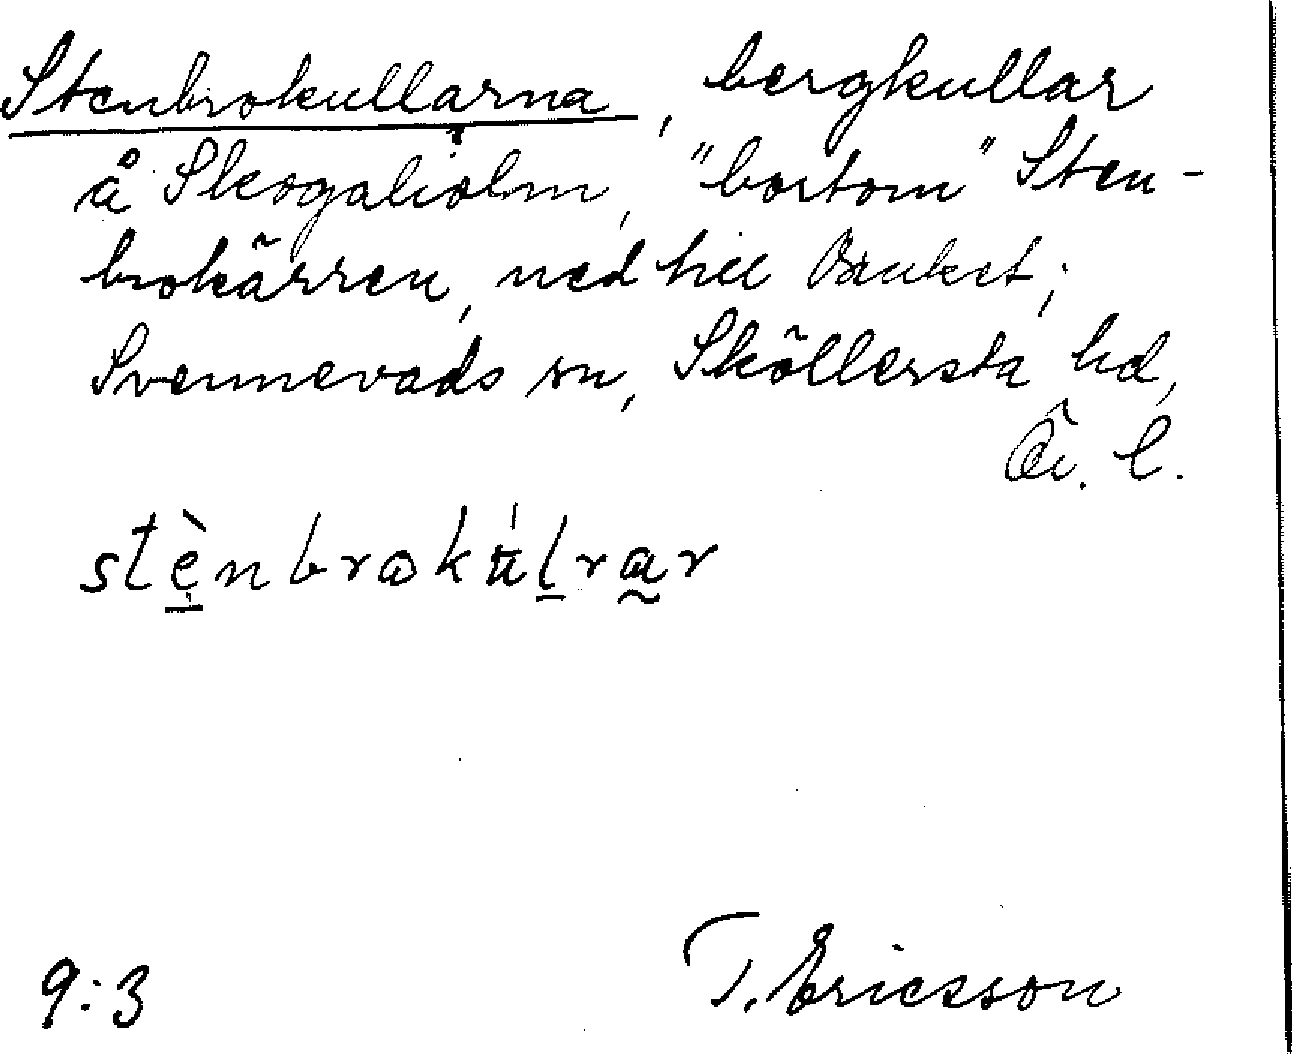 Stenbrokullarna, bergkullar
å Skogaholm, "bortom" Sten-
brokärren, ned till Bänket;
Svennevads sn, Sköllersta hd,
Ör. l.
stènbrokúlrar
9:3 T. Ericsson